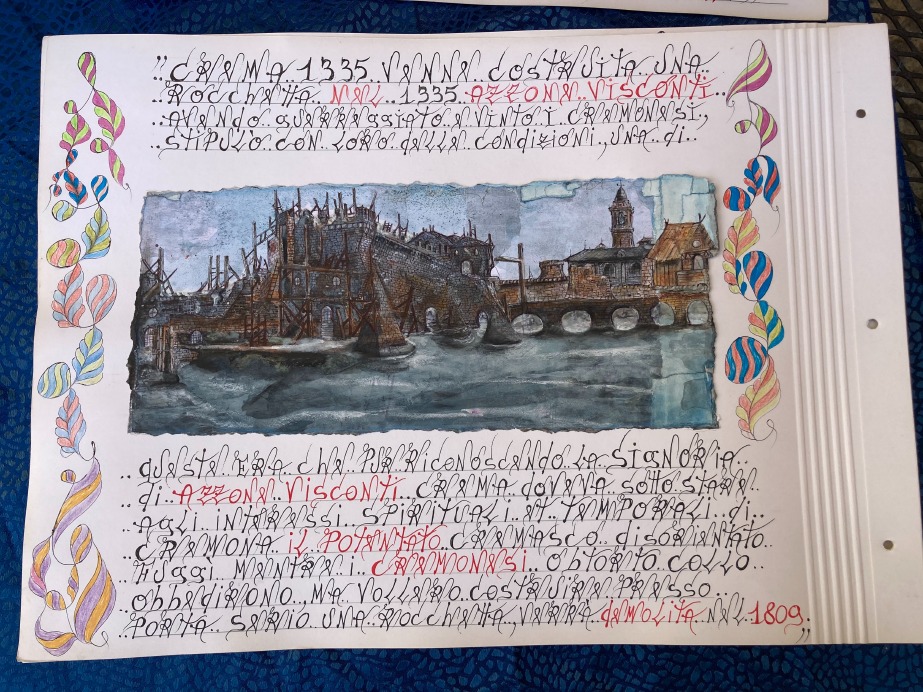 "CREMA 1335 VENNE COSTRUITA UNA
ROCCHETTA NEL 1335 AZZONE VISCONTI
AVENDO GUERREGGIATO E VINTO I CREMONESI,
STIPULÒ CON LORO DELLE CONDIZIONI, UNA DI
QUESTE ERA CHE PUR RICONOSCENDO LA SIGNORIA
DI AZZONE VISCONTI CREMA DOVEVA SOTTOSTARE
AGLI INTERESSI SPIRITUALI ET TEMPORALI DI
CREMONA IL POTENTATO CREMASCO DISORIENTATO
FUGGÌ MENTRE I CREMONESI OBTORTO COLLO
OBBEDIRONO, MA VOLLERO COSTRUIRE PRESSO
PORTA SERIO UNA ROCCHETTA, VERRÀ DEMOLITA NEL 1809,,